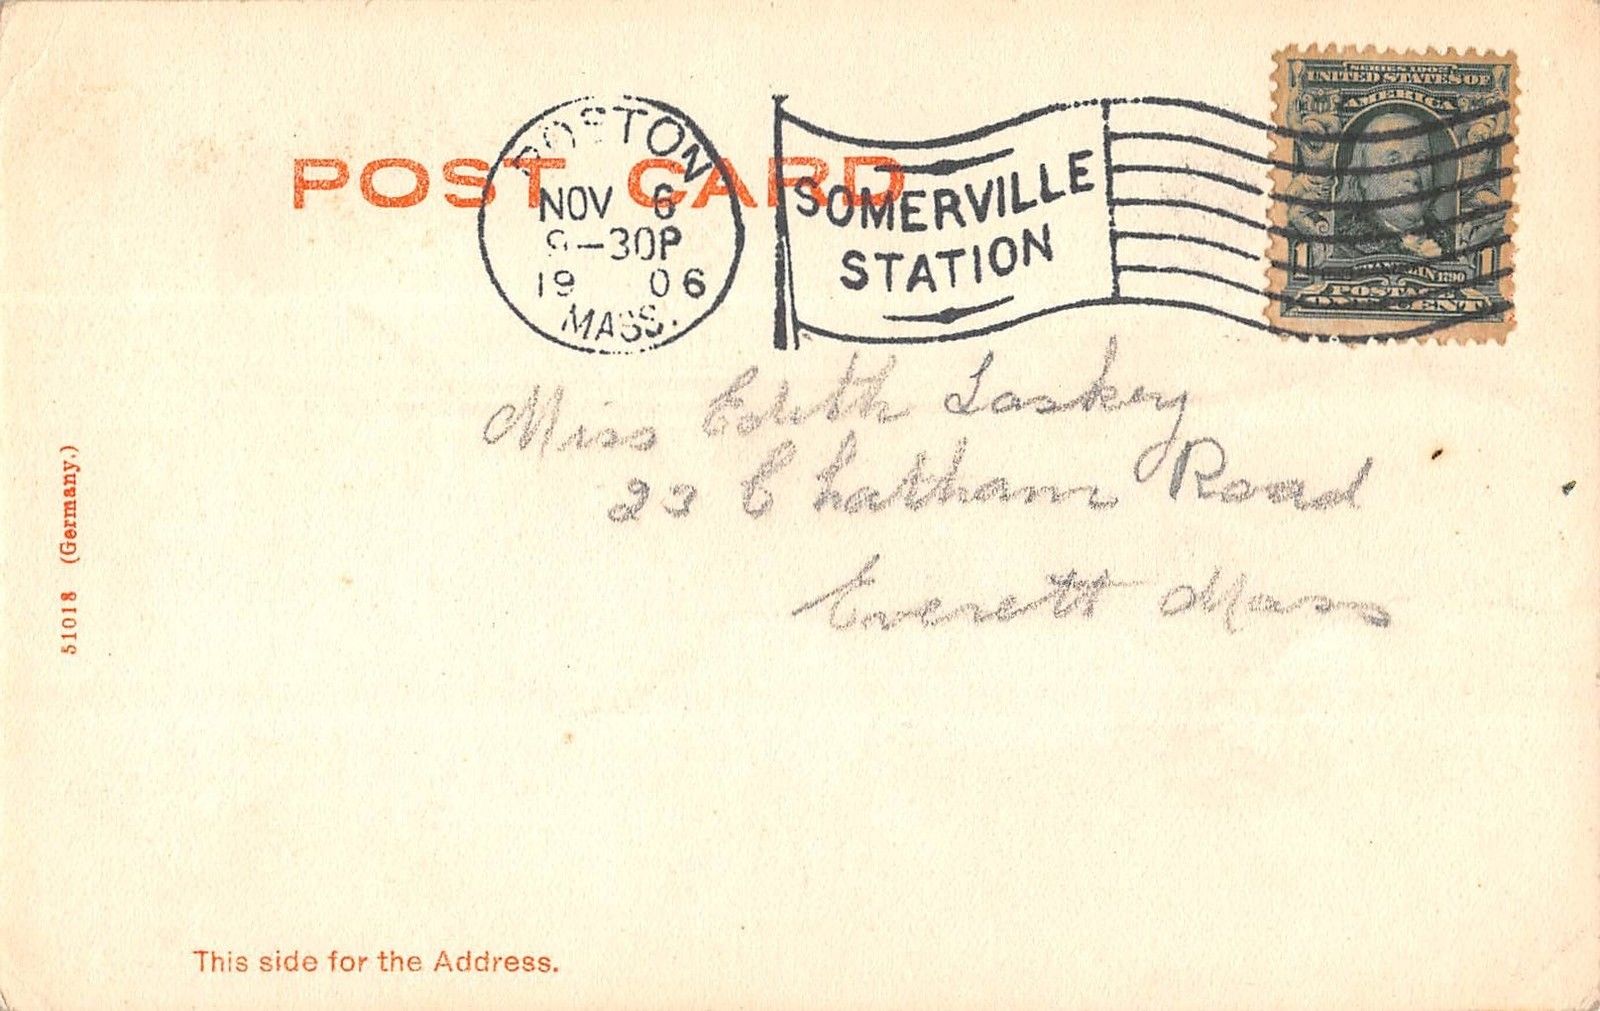 POST CARD
BOSTON
NOV 6
9-30P
19 06
MASS.
SOMERVILLE
STATION
SERIES 1902
UNITED STATES OF
AMERICA
1 FRANKLIN 1790 1
POSTAGE
ONE CENT
Miss Edith Laskey
23 Chatham Road
Everett Mass
51018 (Germany.)
This side for the Address.